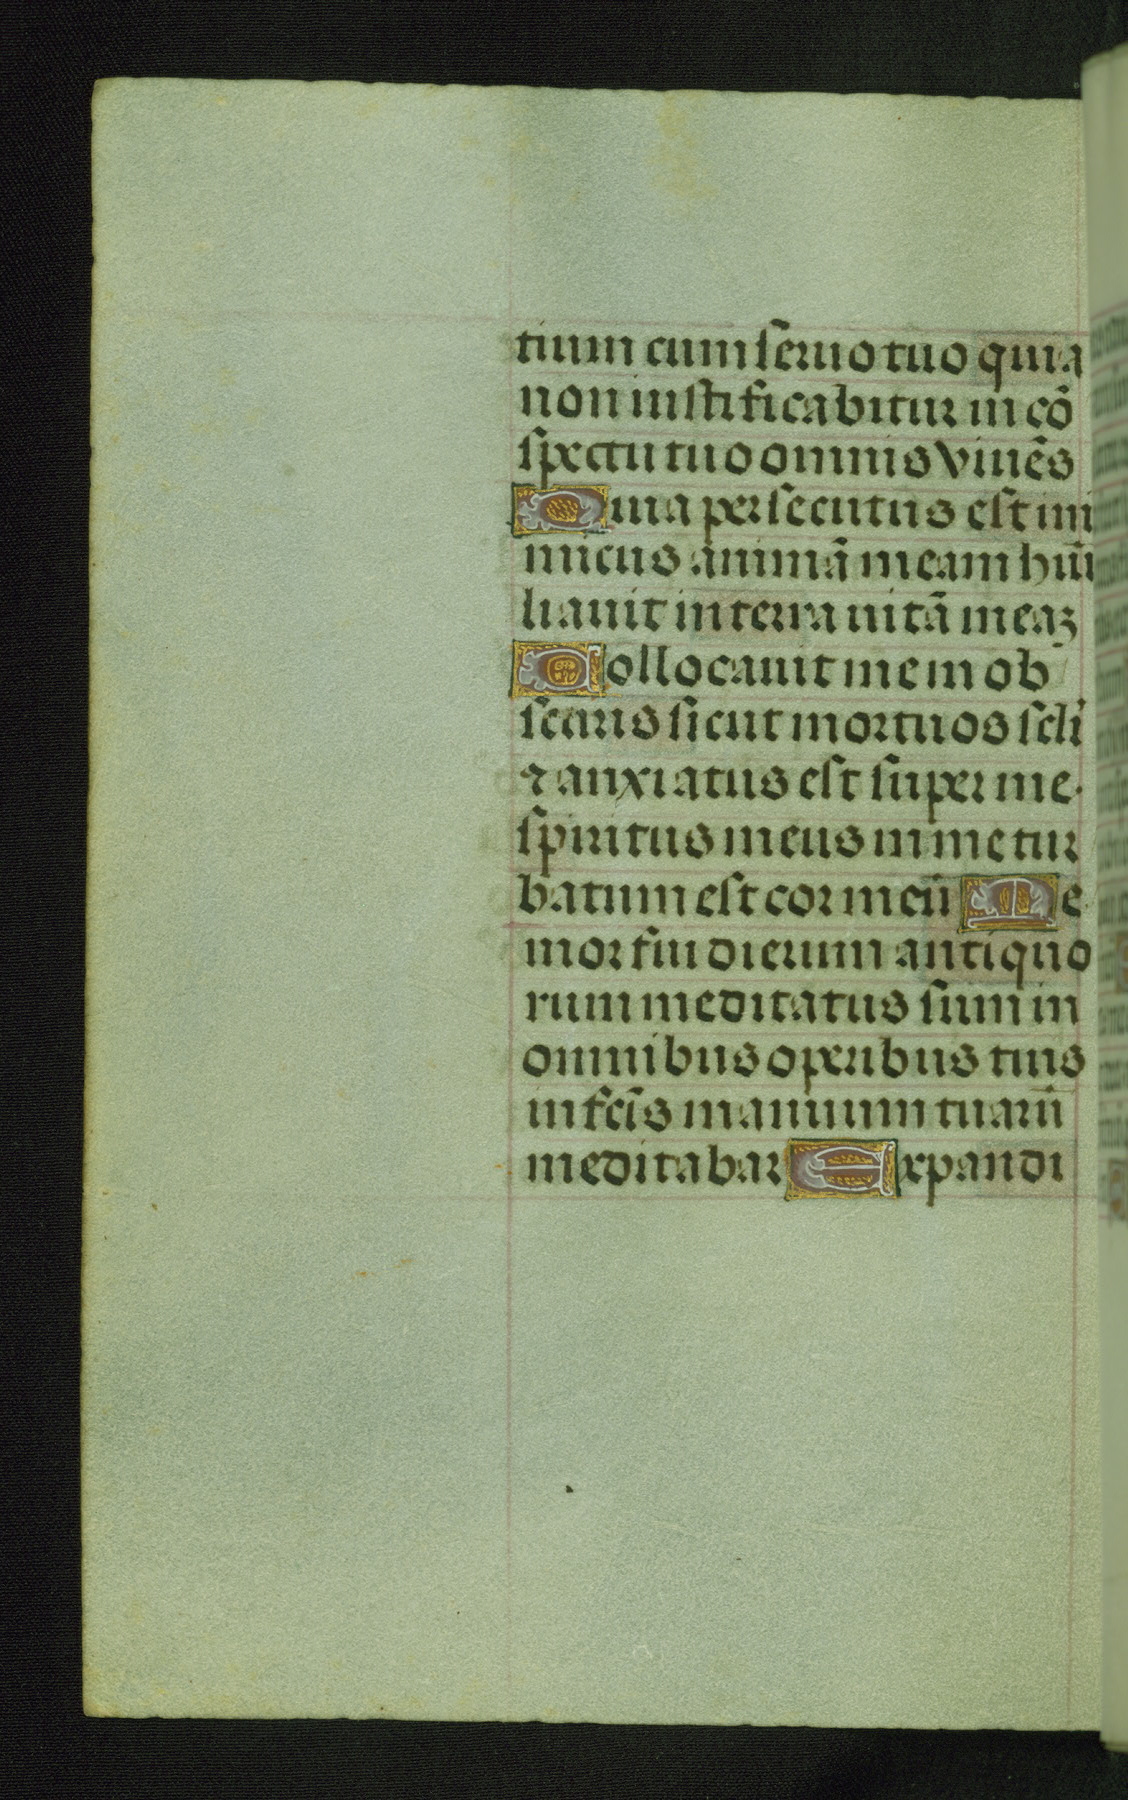 tium cum seruo tuo quia
non iustificabitur in cō
spectu tuo omnis viuēs
Quia persecutus est ini
micus animā meam hūi
liauit in terra uitā meaʒ
Collocauit me in ob
scuris sicut mortuos scľi
⁊ anxiatus est super me
spiritus meus in me tur
batum est cor meū Me
mor fui dierum antiquo
rum meditatus sum in
omnibus operibus tuis
in fc̄is manuum tuarū
meditabar Expandi